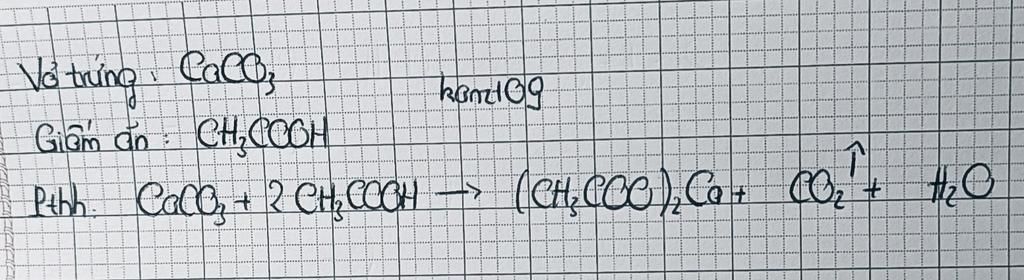 Vỏ trứng: CaCO₃
kamz109
Giấm ăn: CH₃COOH
Pthh: CaCO₃ + 2CH₃COOH → (CH₃COO)₂Ca + CO₂↑ + H₂O